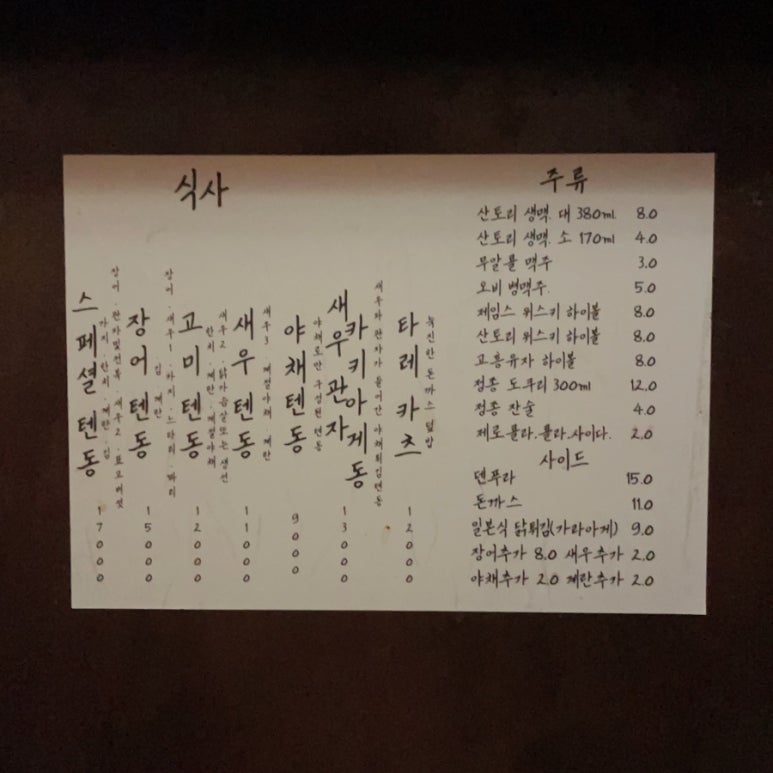 식사
스페셜 텐동
장어·관자및전복·새우2·표고버섯
가지·한치·계란·김
17000
장어 텐동
장어·새우1·가지·느타리·꽈리
김·계란
15000
고미 텐동
새우2·닭가슴살또는생선
한치·계란·계절야채
12000
새우 텐동
새우3·계절야채·계란
11000
야채텐동
야채로만 구성된 텐동
9000
새우관자
카키아게동
새우와 관자가 들어간 야채튀김텐동
13000
타레 카츠
녹진한 돈까스 덮밥
12000
주류
산토리 생맥. 대 380ml. 8.0
산토리 생맥. 소 170ml 4.0
무알콜 맥주 3.0
오비 병맥주. 5.0
제임스 위스키 하이볼 8.0
산토리 위스키 하이볼 8.0
고흥유자 하이볼 8.0
정종 도쿠리 300ml 12.0
정종 잔술 4.0
제로콜라.콜라.사이다. 2.0
사이드
덴푸라 15.0
돈까스 11.0
일본식 닭튀김(가라아게) 9.0
장어추가 8.0 새우추가 2.0
야채추가 2.0 계란추가 2.0